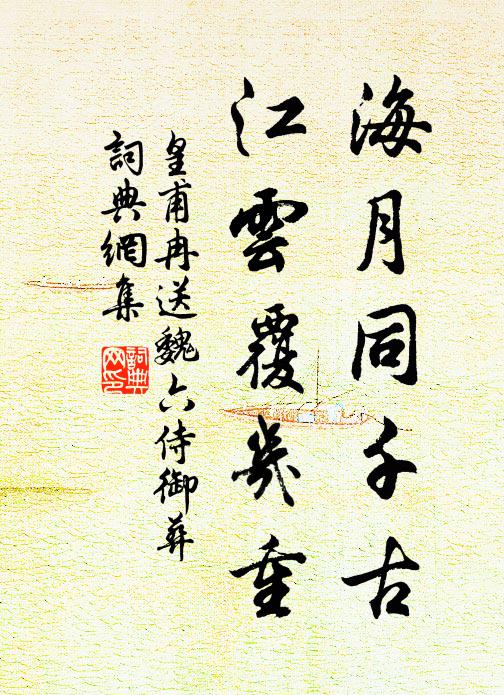 海月同千古
江雲覆幾重
皇甫冉送魏六侍御葬
詞典網集
詞典
网印